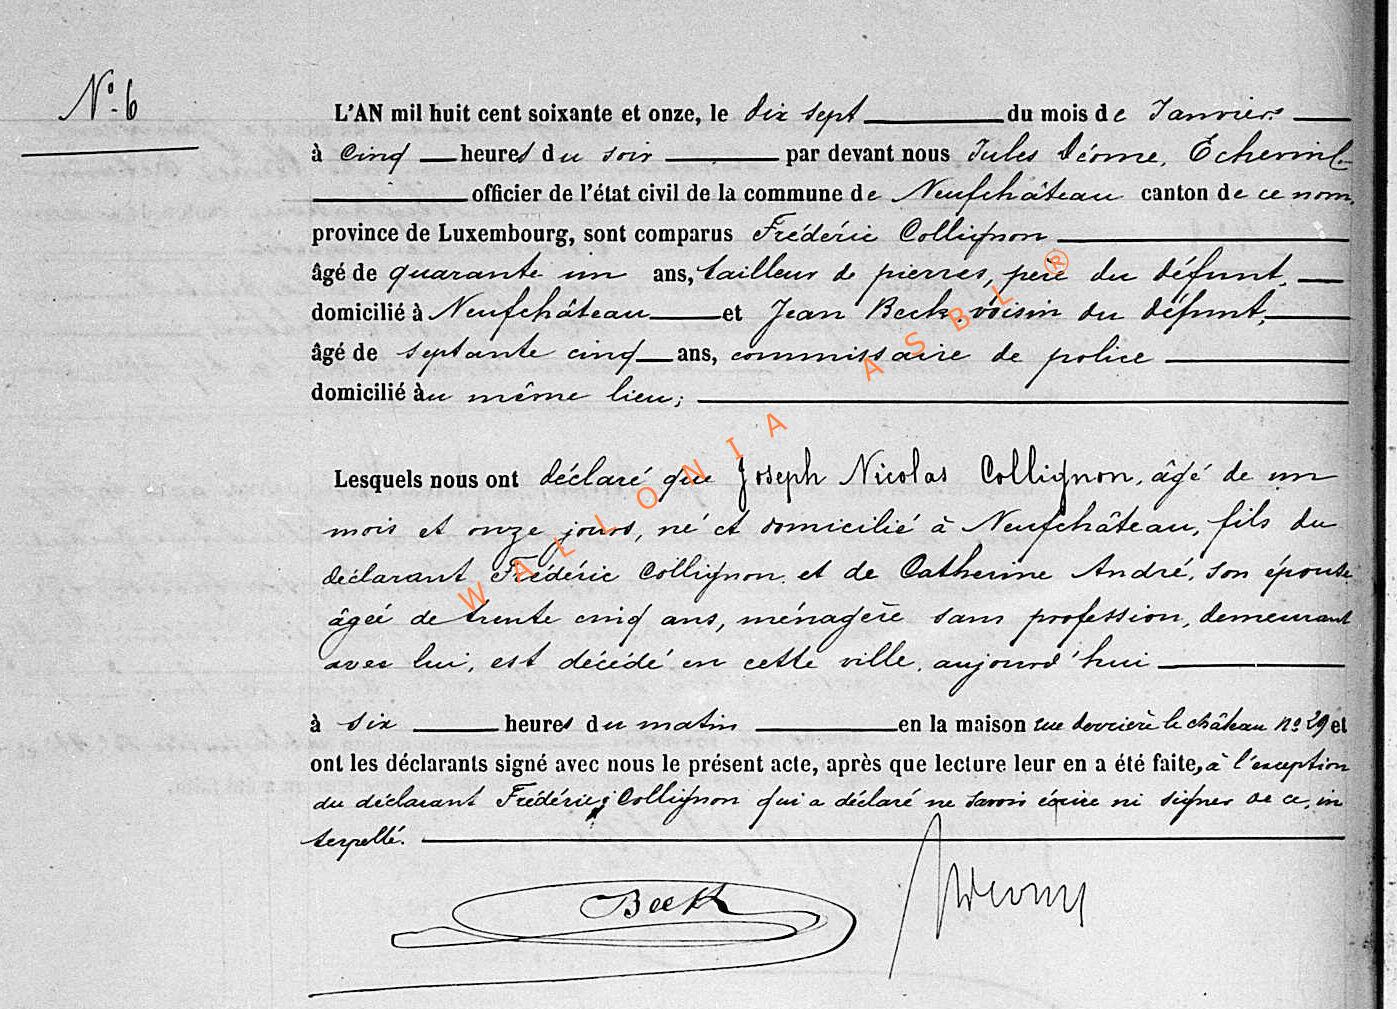 N° 6
L'AN mil huit cent soixante et onze, le dix sept du mois de Janvier
à cinq heures du soir par devant nous Jules Déome, Echevin
officier de l'état civil de la commune de Neufchâteau canton de ce nom,
province de Luxembourg, sont comparus Frédéric Collignon
âgé de quarante un ans, tailleur de pierres, père du défunt,
domicilié à Neufchâteau et Jean Beck, voisin du défunt,
âgé de septante cinq ans, commissaire de police
domicilié au même lieu;
Lesquels nous ont déclaré que Joseph Nicolas Collignon, âgé de un
mois et onze jours, né et domicilié à Neufchâteau, fils du
déclarant Frédéric Collignon et de Catherine André, son épouse
âgée de trente cinq ans, ménagère sans profession, demeurant
avec lui, est décédé en cette ville, aujourd'hui
à six heures du matin en la maison rue derrière le château n° 29 et
ont les déclarants signé avec nous le présent acte, après que lecture leur en a été faite, à l'exception
du déclarant Frédéric Collignon qui a déclaré ne savoir écrire ni signer de ce, in
terpellé.
Beck
JDéome
WALLONIA ASBL ®